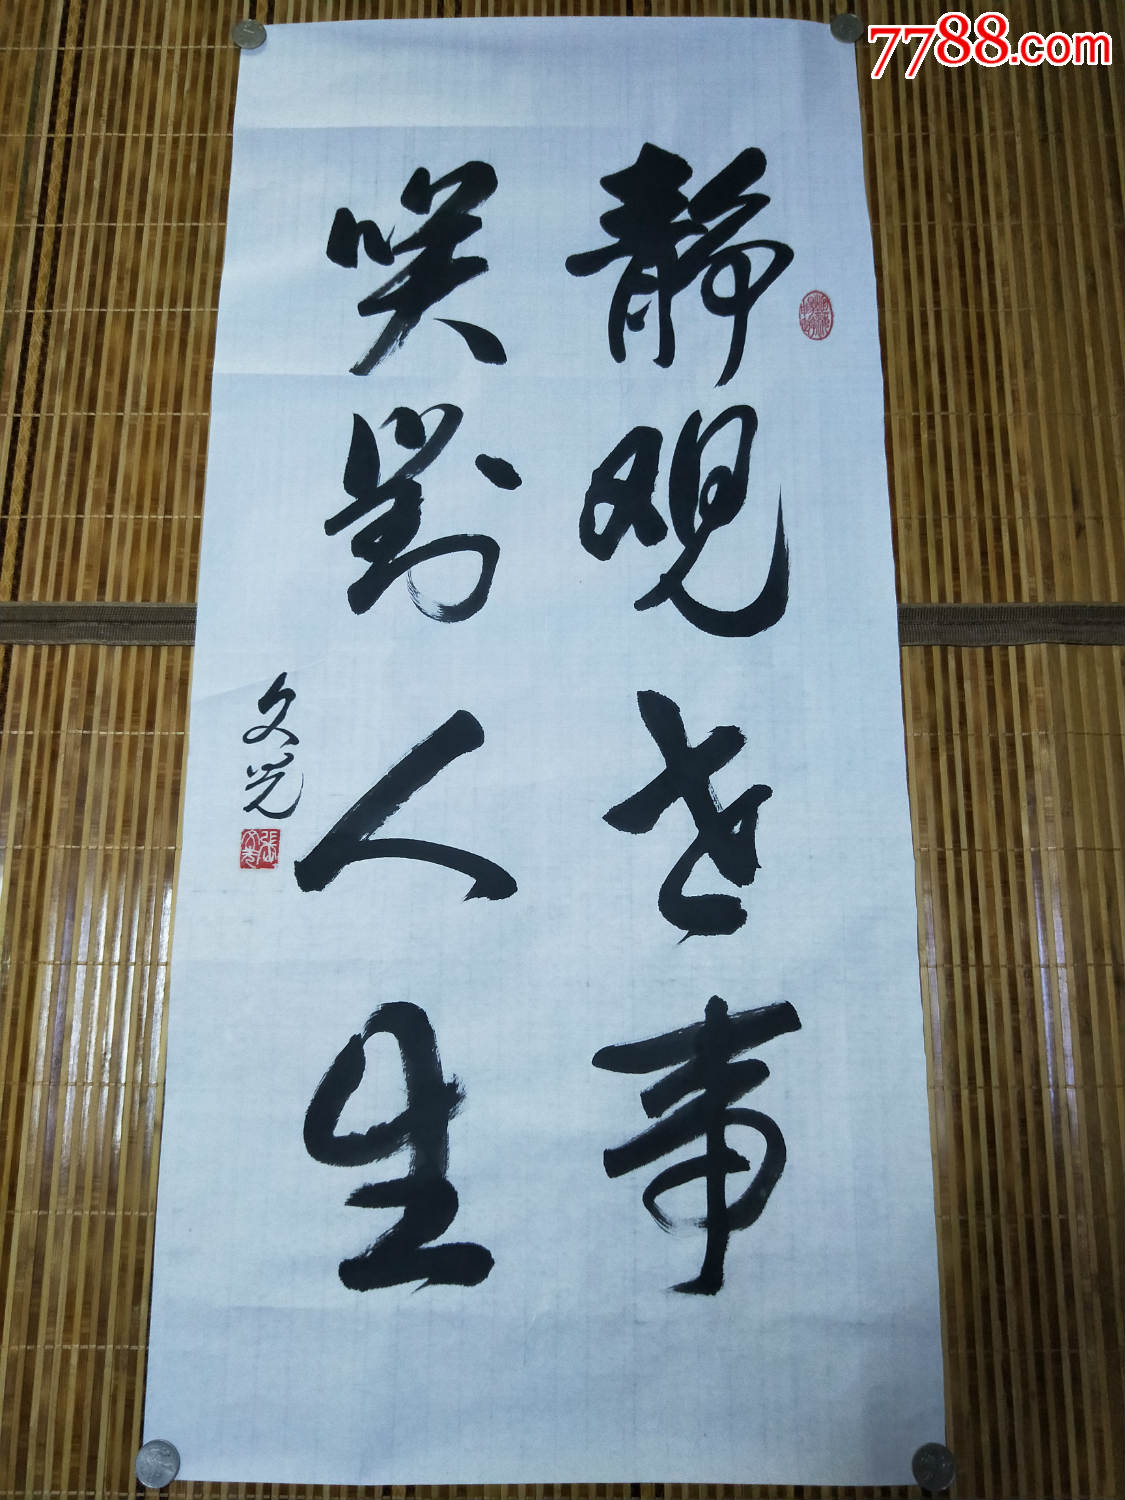 7788.com
静观世事
咲對人生
文光